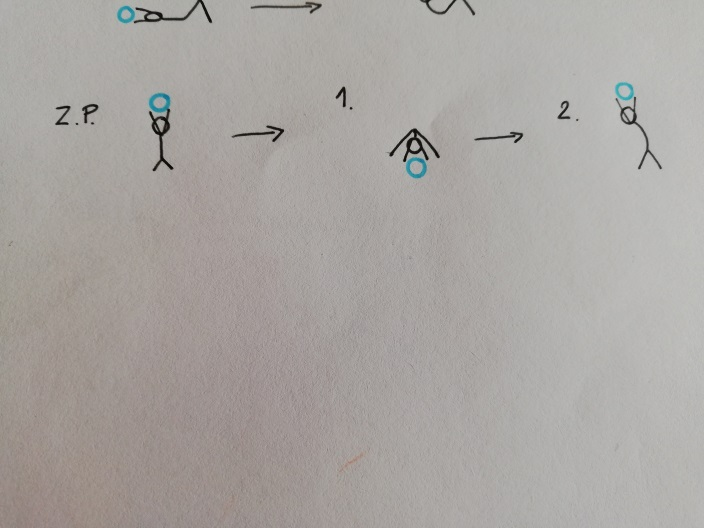 Z.P. 1. 2.